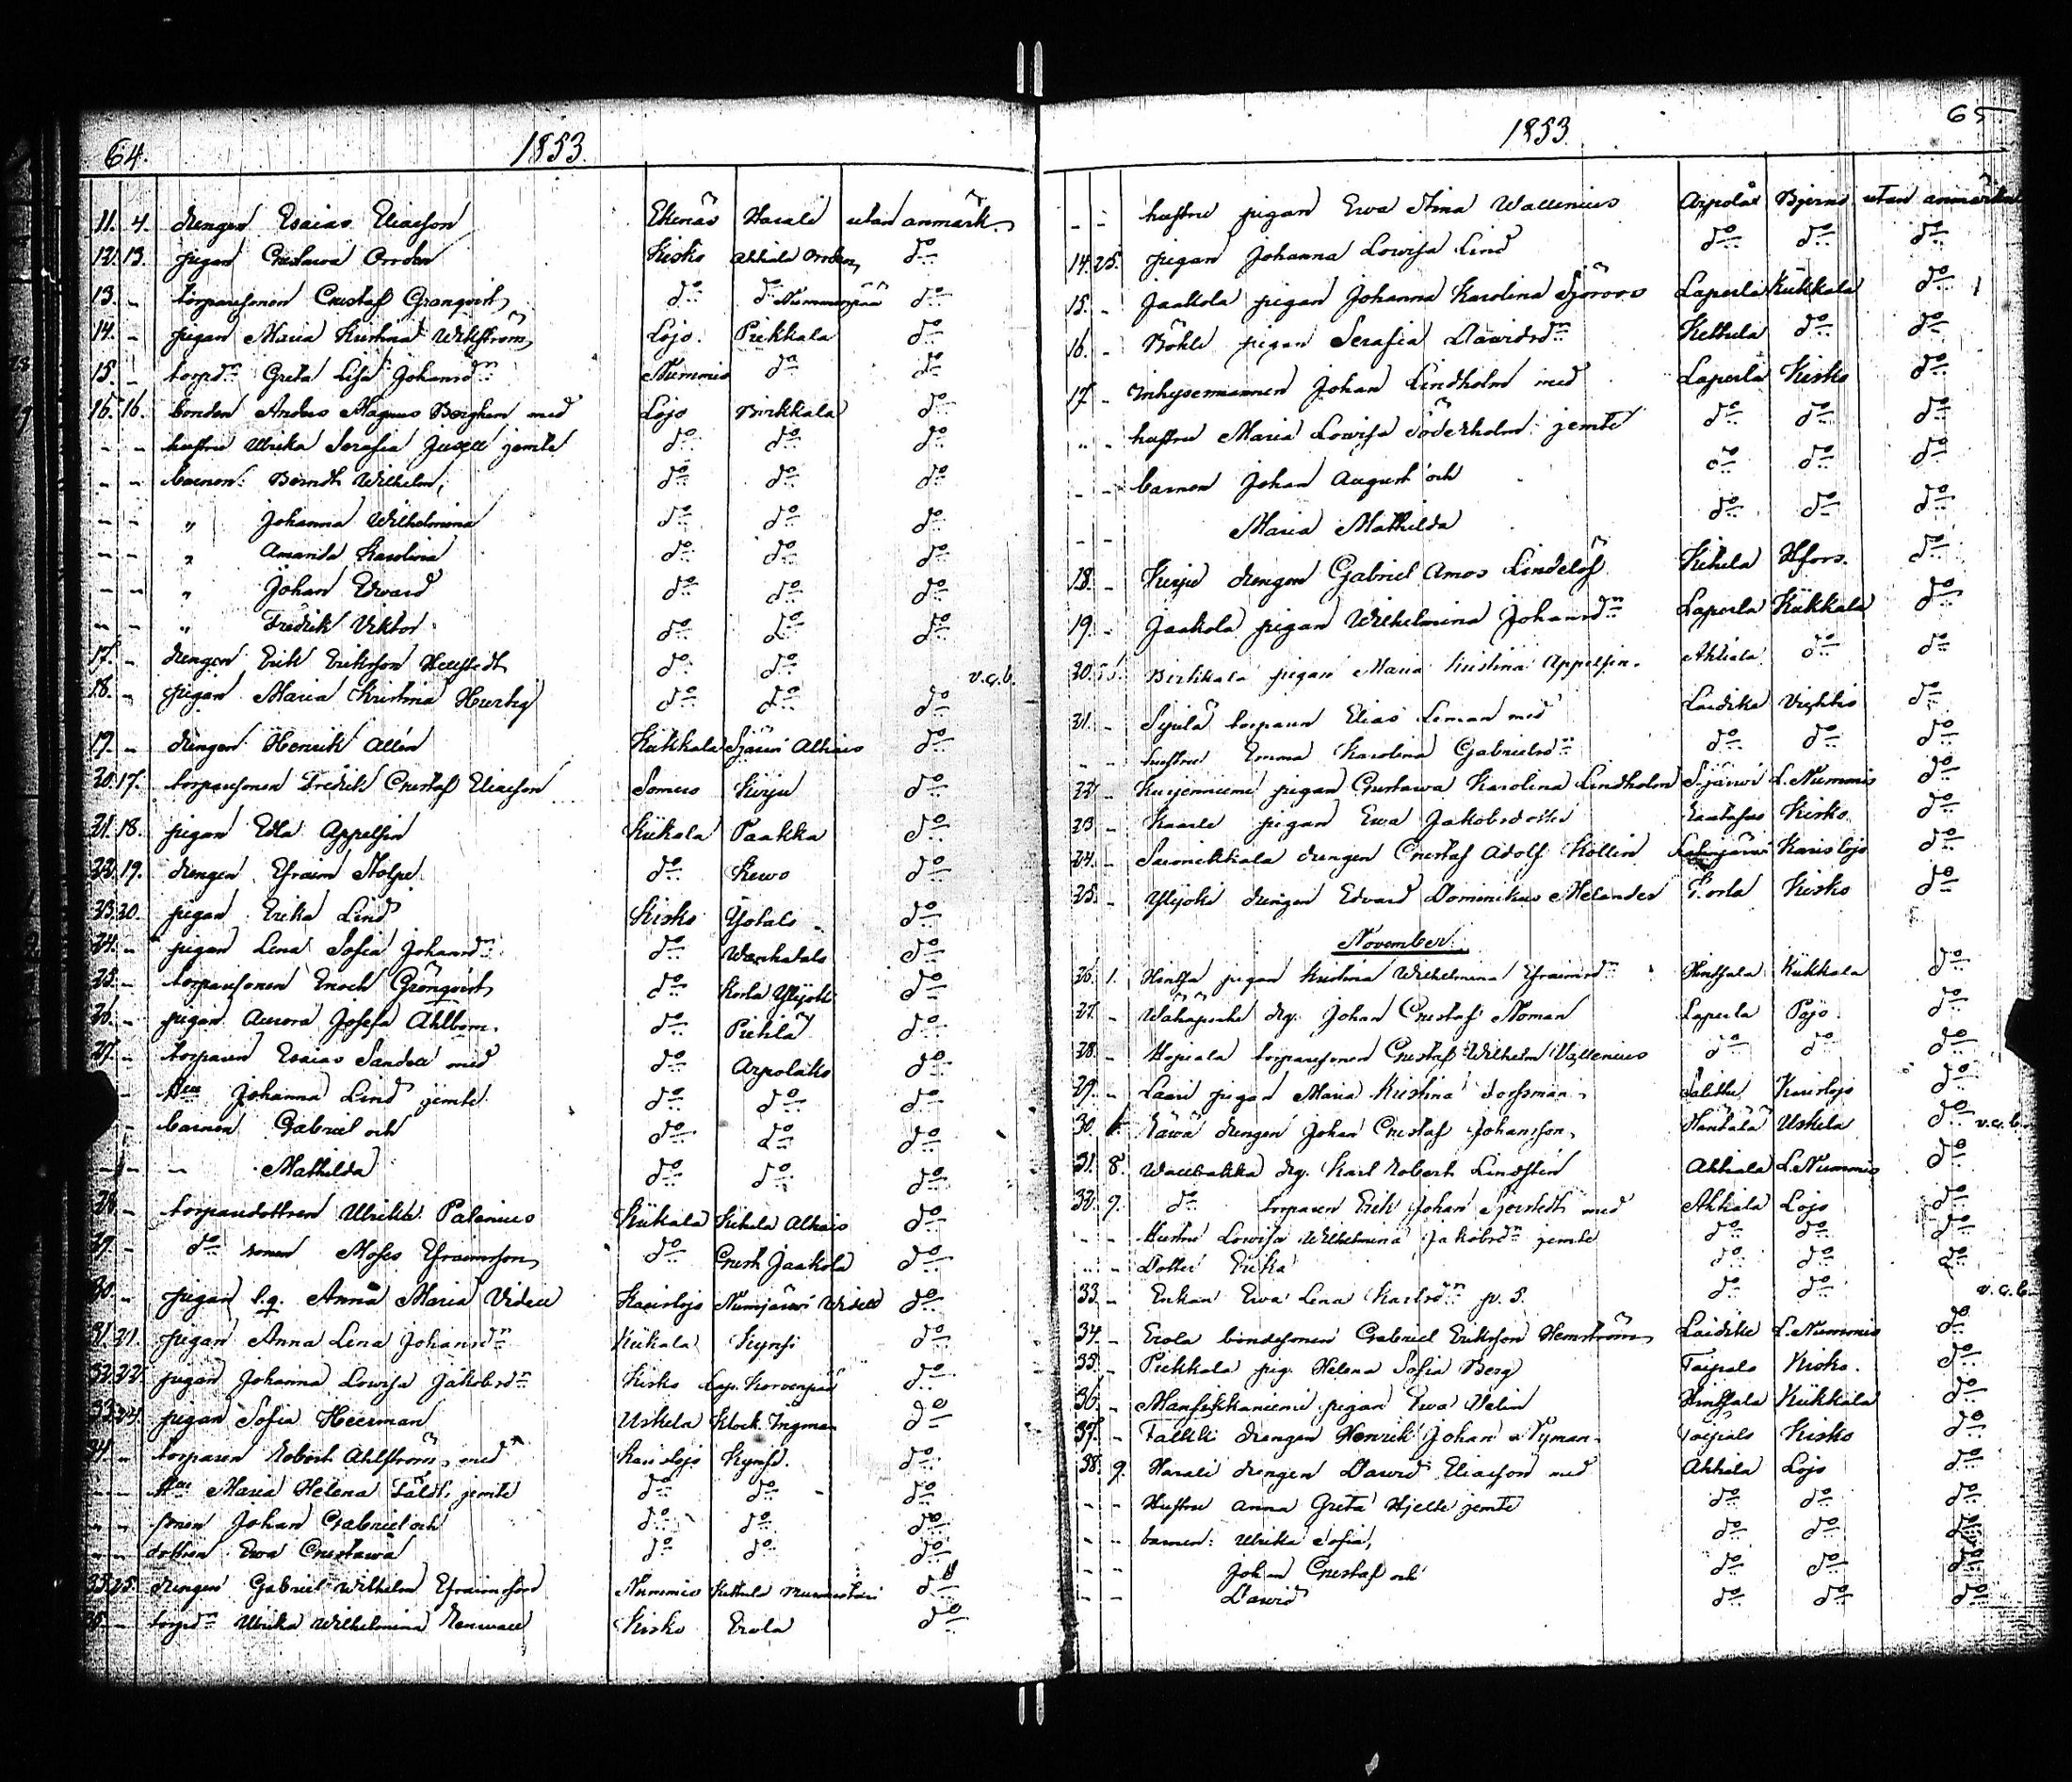 64.
1853.
11. 4. drengen Esaias Eliasson Ekenäs Harald utan anmärk.
12. 13. pigan Gustawa Orrden Kisko Ahtiala Orrden do
13. - torparesonen Gustaf Grönqvist do do Nummenpää do
14. - pigan Maria Kristina Wikström Lojo. Pirkkala do
15. - torpdn Greta Lisa Johansdn Nummis do do
16. 16. bonden Anders Magnus Bergham med Lojo Pirkkala do
- - hustru Ulrika Serafia Juxell jemte do do do
- - barnen: Berndt Wilhelm, do do do
- - " Johanna Wilhelmina do do do
- - " Amanda Karolina do do do
- - " Johan Edward do do do
- - " Fredrik Viktor do do do
17. - drengen Erik Eriksson Hellstedt do do v.a.b.
18. - pigan Maria Kristina Hurtig do do do
19. - drengen Henrik Allén Kiikkala Sjärvi Alhais do
20. 17. torparesonen Fredrik Gustaf Eliasson Somero Kirju do
21. 18. pigan Edla Appelsin Kiikala Paakka do
22. 19. drengen Efraim Stolpe do Kewo do
23. 20. pigan Erika Lind Kisko Yotalo do
24. - pigan Lena Sofia Johansdn do Wanhatalo do
25. - torparesonen Enoch Grönqvist do Korla Ylijoki do
26. - pigan Aurora Josefa Ahlbom. do Piehlä do
27. - torparen Esaias Sandell med do Arpolaks do
- Hu Johanna Lind jemte do do do
- barnen Gabriel och do do do
- - - Mathilda do do do
28 - torparedottren Ulrika Palenius Kiikala Kihela Alhais do
29. - do sonen Moses Efraimsson do Gust. Jaakola do
30. - pigan s.q. Anna Maria Videll Karislojo Numijärvi Widell do
31. 21. pigan Anna Lena Johansdn Kiikala Kynsi do
32. 22. pigan Johanna Lowisa Jakobsdn Kisko Lap. Korvenpää do
33. 24. pigan Sofia Heerman Uskela Klock. Ingman do
34. - torparen Robert Ahlström med Karislojo Kynsi. do
- - Hu Maria Helena Fäldt jemte do do do
- - sonen Johan Gabriel och do do do
- - dottren Ewa Gustawa do do do
35. 25. drengen Gabriel Wilhelm Efraimsson Nummis Kettula do
- torpdn Ulrika Wilhelmina Renwall Kisko Erola do
65
1853.
- - hustru pigan Ewa Stina Wallenius Arpolax Bjerno utan anmärkn
14. 25. pigan Johanna Lowisa Lind do do do
15. - Jaakola pigan Johanna Karolina Sjöroos Laperla Kiikkala do
16. - Böhle pigan Serafia Dawidsdn Kettula do do
17. - Inhysesmannen Johan Lindholm med Laperla Kisko do
" - hustru Maria Lowisa Söderholm jemte do do do
- - barnen Johan August och do do do
- - Maria Mathilda do do do
18. - Kirju drengen Gabriel Amos Lindelöf Kihela Hfors. do
19. - Jaakola pigan Wilhelmina Johansdn Laperla Kiikkala do
20. - Pirkkala pigan Maria Kristina Appelsin. Ahtiala do do
21. - Sipilä torparen Elias Leman med Laidike Vichtis do
- - hustru Emma Karolina Gabrielsdn do do do
22. - Kurjenniemi pigan Gustawa Karolina Lindholm Sjärwi L. Nummis do
23 - Kaarle pigan Ewa Jakobsdotter Kisko do
24. - Suonikkala drengen Gustaf Adolf Kollin Karislojo do
25. - Ylijoki drengen Edvard Dominikus Melander Korla Kisko do
November.
26. 1. Hintsa pigan Kristina Wilhelmina Efraimsdn Hintsala Kiikkala do
27. - Wähäperhe drg. Johan Gustaf Noman Laperla Pojo. do
28. - Hopiala torparesonen Gustaf Wilhelm Wallenius do do do
29. - Laari pigan Maria Kristina Forssman. Salitte Karislojo do
30. 6. Räwä drengen Johan Gustaf Johansson. Händälä Uskela do v.a.b.
31. 8. Wallbakka drg. Karl Robert Lindstén Ahtiala L. Nummis do
32. 9. do torparen Erik Johan Sjöstedt med Ahtiala Lojo do
- - Hustru Lowisa Wilhelmina Jakobsdn jemte do do do
- - Dotter Erika do do do
33. - Enkan Ewa Lena Karlsdn p. S. do do v.a.b.
34. - Erola bondesonen Gabriel Eriksson Hemström Laidike L. Nummis do
35. - Pirkkala pig. Helena Sofia Berg Taipals Kisko. do
36. - Mansikkaniemi pigan Ewa Velin Hintsala Kiikkala do
37. - Falkki drengen Henrik Johan Nyman. Taipals Kisko do
38. 9. Harali drengen Dawid Eliasson med Ahtiala Lojo do
- - Hustru Anna Greta Hjelte jemte do do do
- - barnen: Ulrika Sofia, do do do
- - Johan Gustaf och do do do
- - Dawid do do do